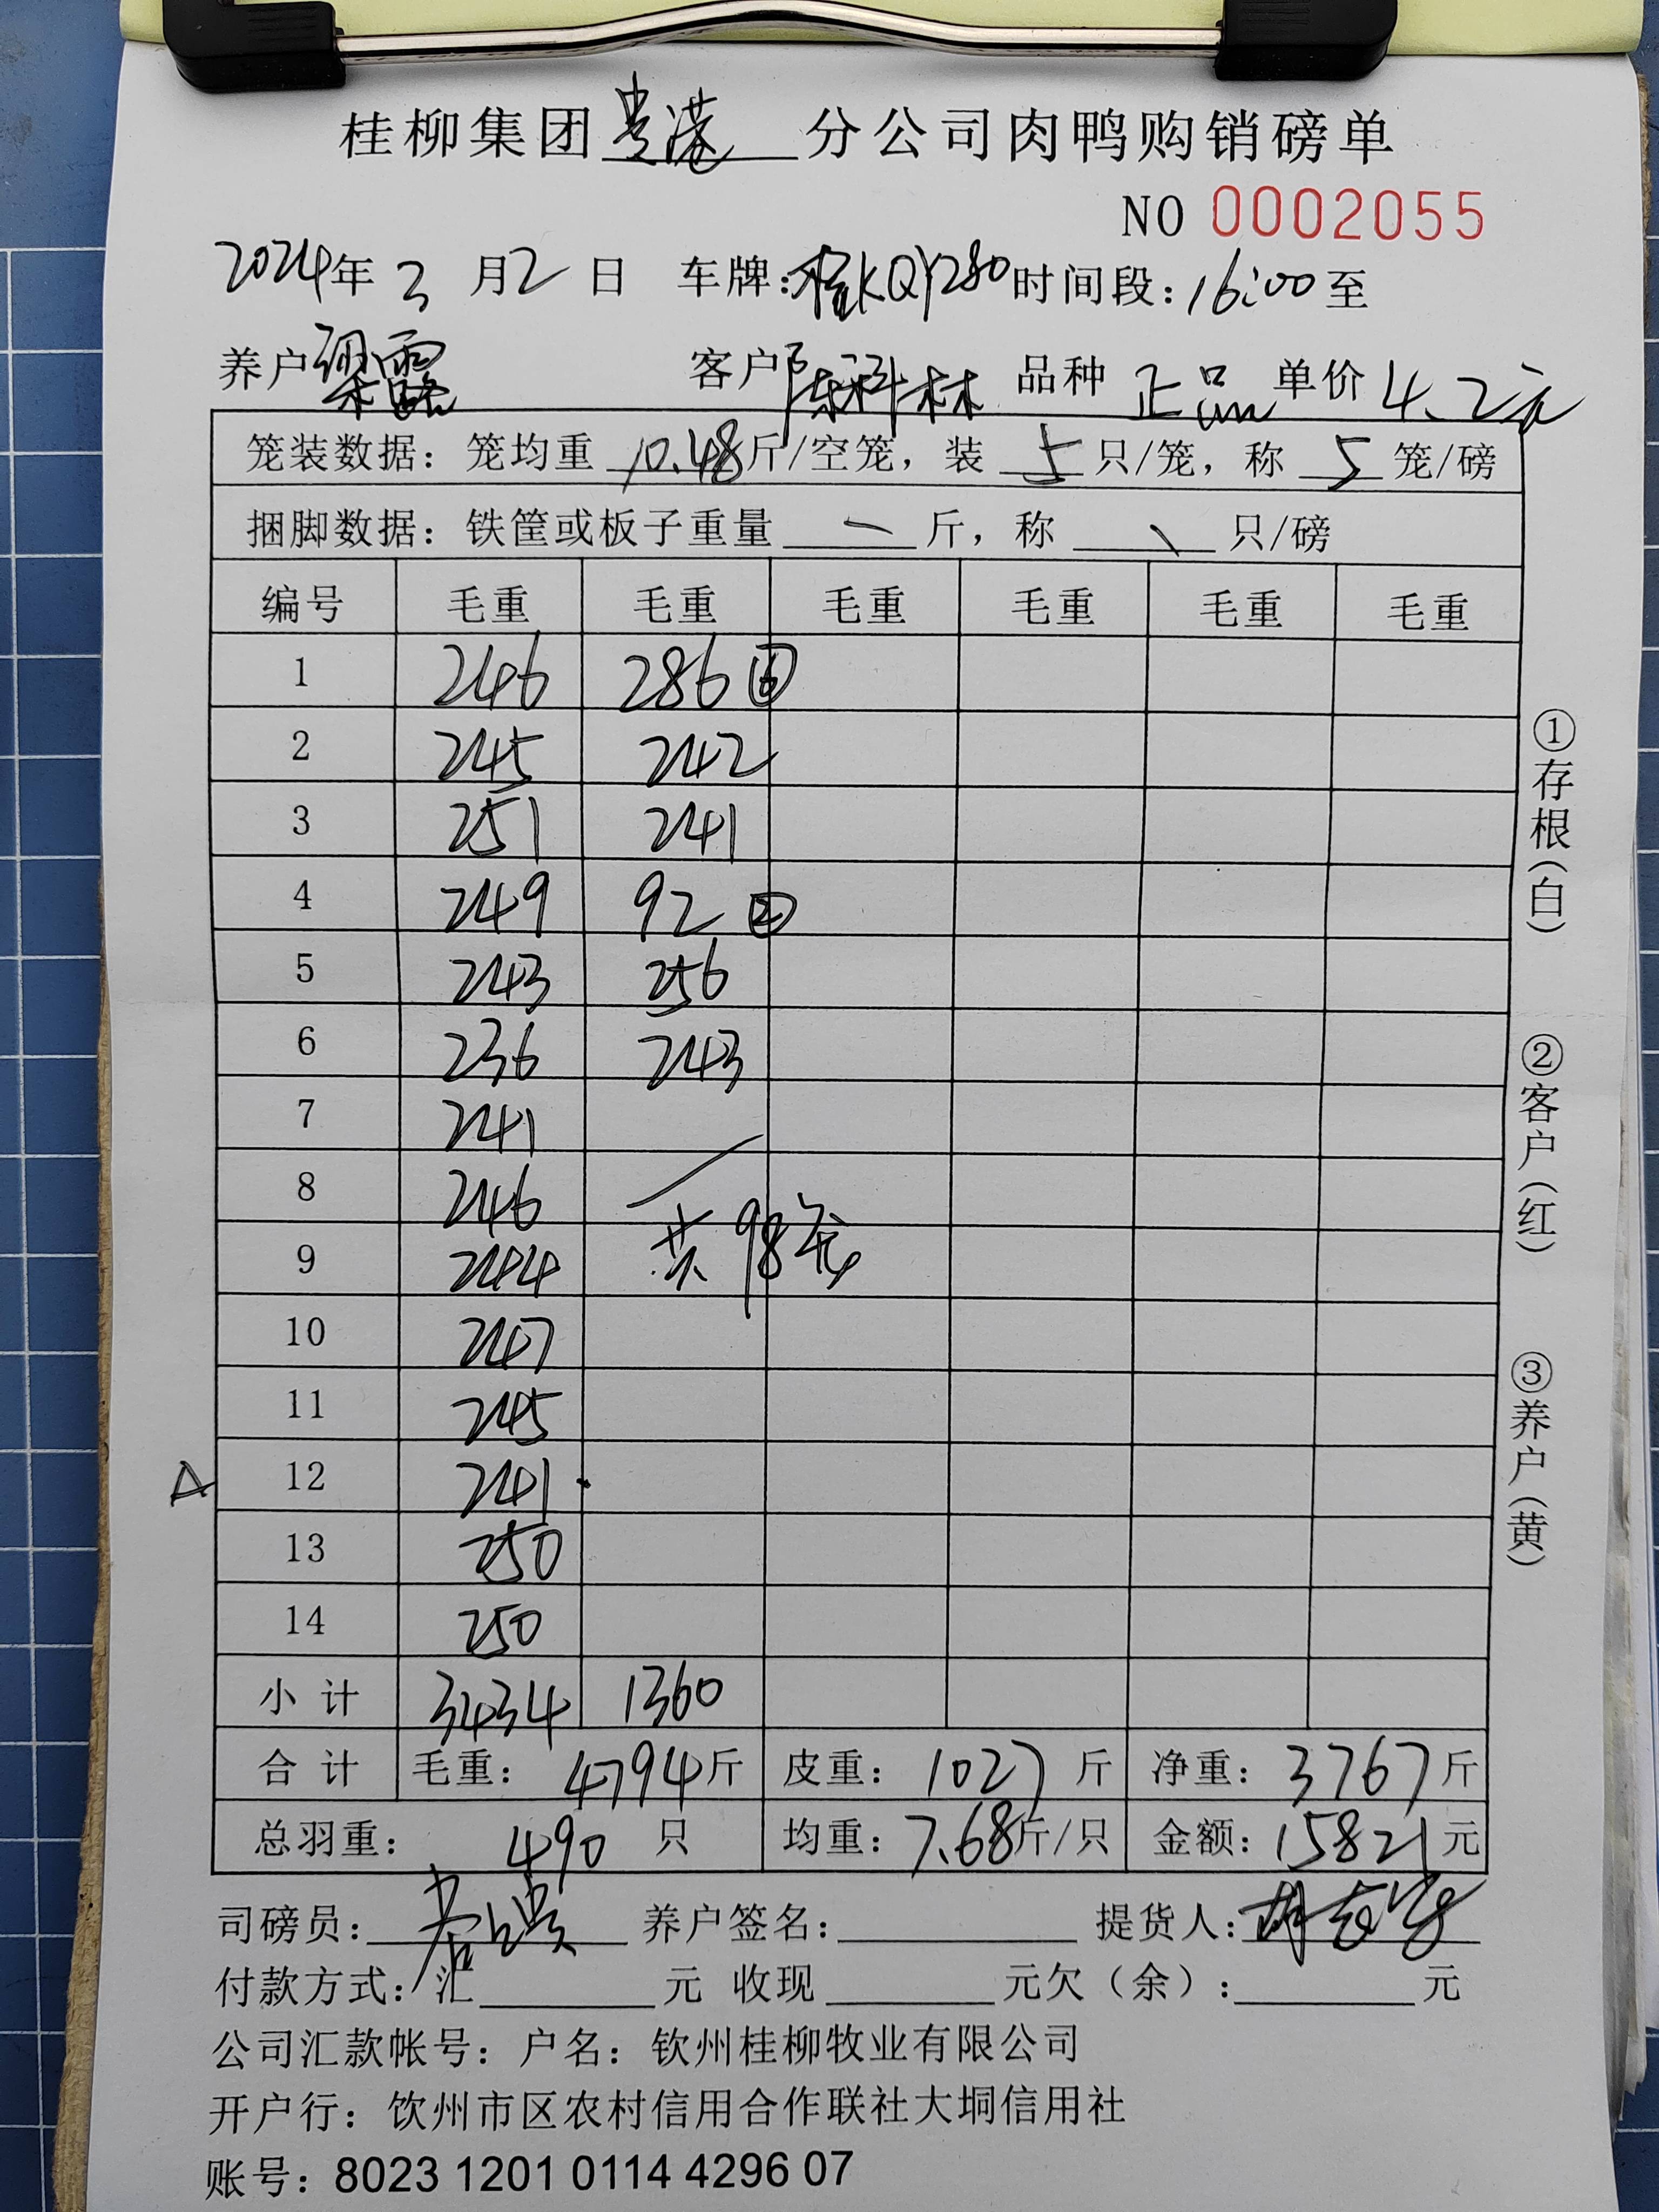 桂柳集团贵港分公司肉鸭购销磅单
NO 0002055
2024年3月2日 车牌:桂KQY280时间段:16:00至
养户梁露 客户陈科林 品种 正品 单价4.2元
笼装数据: 笼均重 10.48斤/空笼, 装 5 只/笼, 称 5 笼/磅
捆脚数据: 铁筐或板子重量 — 斤, 称 \ 只/磅
编号 毛重 毛重 毛重 毛重 毛重 毛重
1 246 286⑥
2 245 242
3 251 241
4 249 92②
5 243 256
6 236 243
7 241
8 246
9 244 共98笼
10 247
11 245
△ 12 241
13 250
14 250
小计 3434 1360
合计 毛重: 4794斤 皮重: 1027斤 净重: 3767斤
总羽重: 490 只 均重: 7.68斤/只 金额: 15821元
司磅员: 养户签名: 提货人:
付款方式: 汇 元 收现 元欠(余): 元
公司汇款帐号: 户名: 钦州桂柳牧业有限公司
开户行: 钦州市区农村信用合作联社大垌信用社
账号: 8023 1201 0114 4296 07
①存根(白)
②客户(红)
③养户(黄)